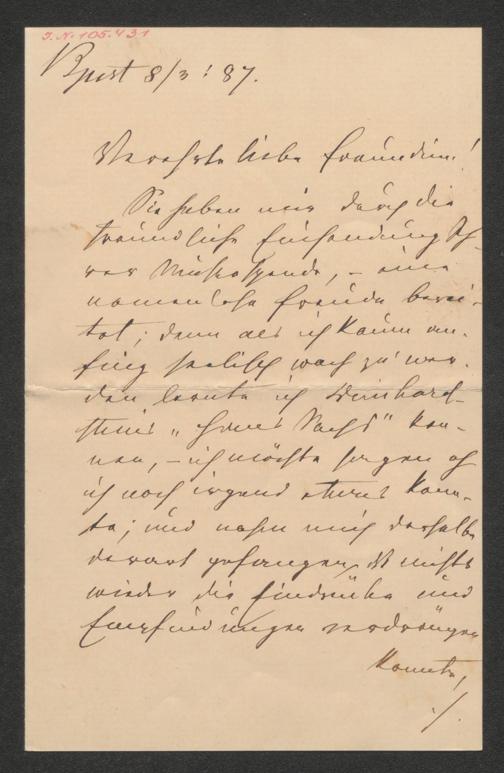 I.N. 105.431
Bpest 8/3 : 87.
Verehrte liebe Freundin!
Sie haben mir durch die
freundliche Einsendung Ih-
rer , – eine
namenlose Freude berei-
tet; denn als ich kaum an-
fing seelisch wach zu wer-
den lernte ich Deinhard-
steins „Hans Sachs" ken-
nen, – ich möchte sagen eh
ich noch irgend etwas kann-
te; und nahm mich derselbe
derart gefangen, daß nichts
wieder die Eindrücke und
Empfindungen verdrängen
konnte,
./.